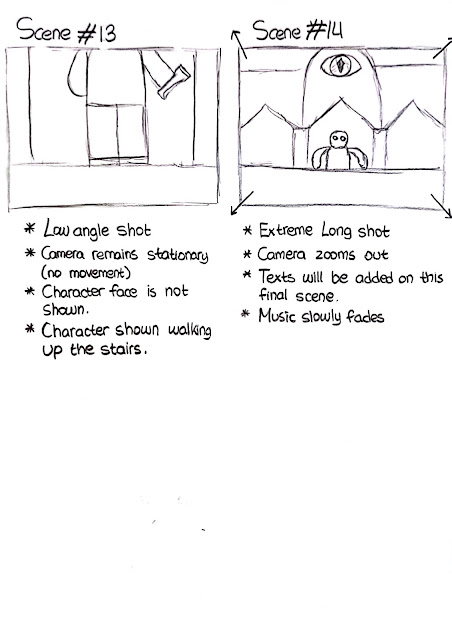 Scene #13
* Low angle shot
* Camera remains stationary
(no movement)
* Character face is not
shown.
* Character shown walking
up the stairs.
Scene #14
* Extreme Long shot
* Camera zooms out
* Texts will be added on this
final scene.
* Music slowly fades